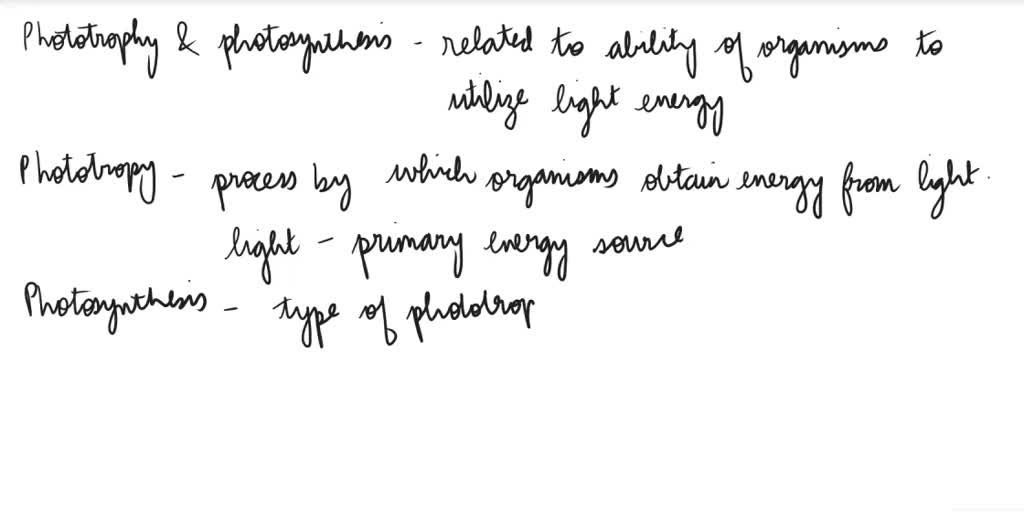 Phototrophy & photosynthesis - related to ability of organisms to
utilize light energy
Phototropy - process by which organisms obtain energy from light.
light - primary energy source
Photosynthesis - type of phototrop